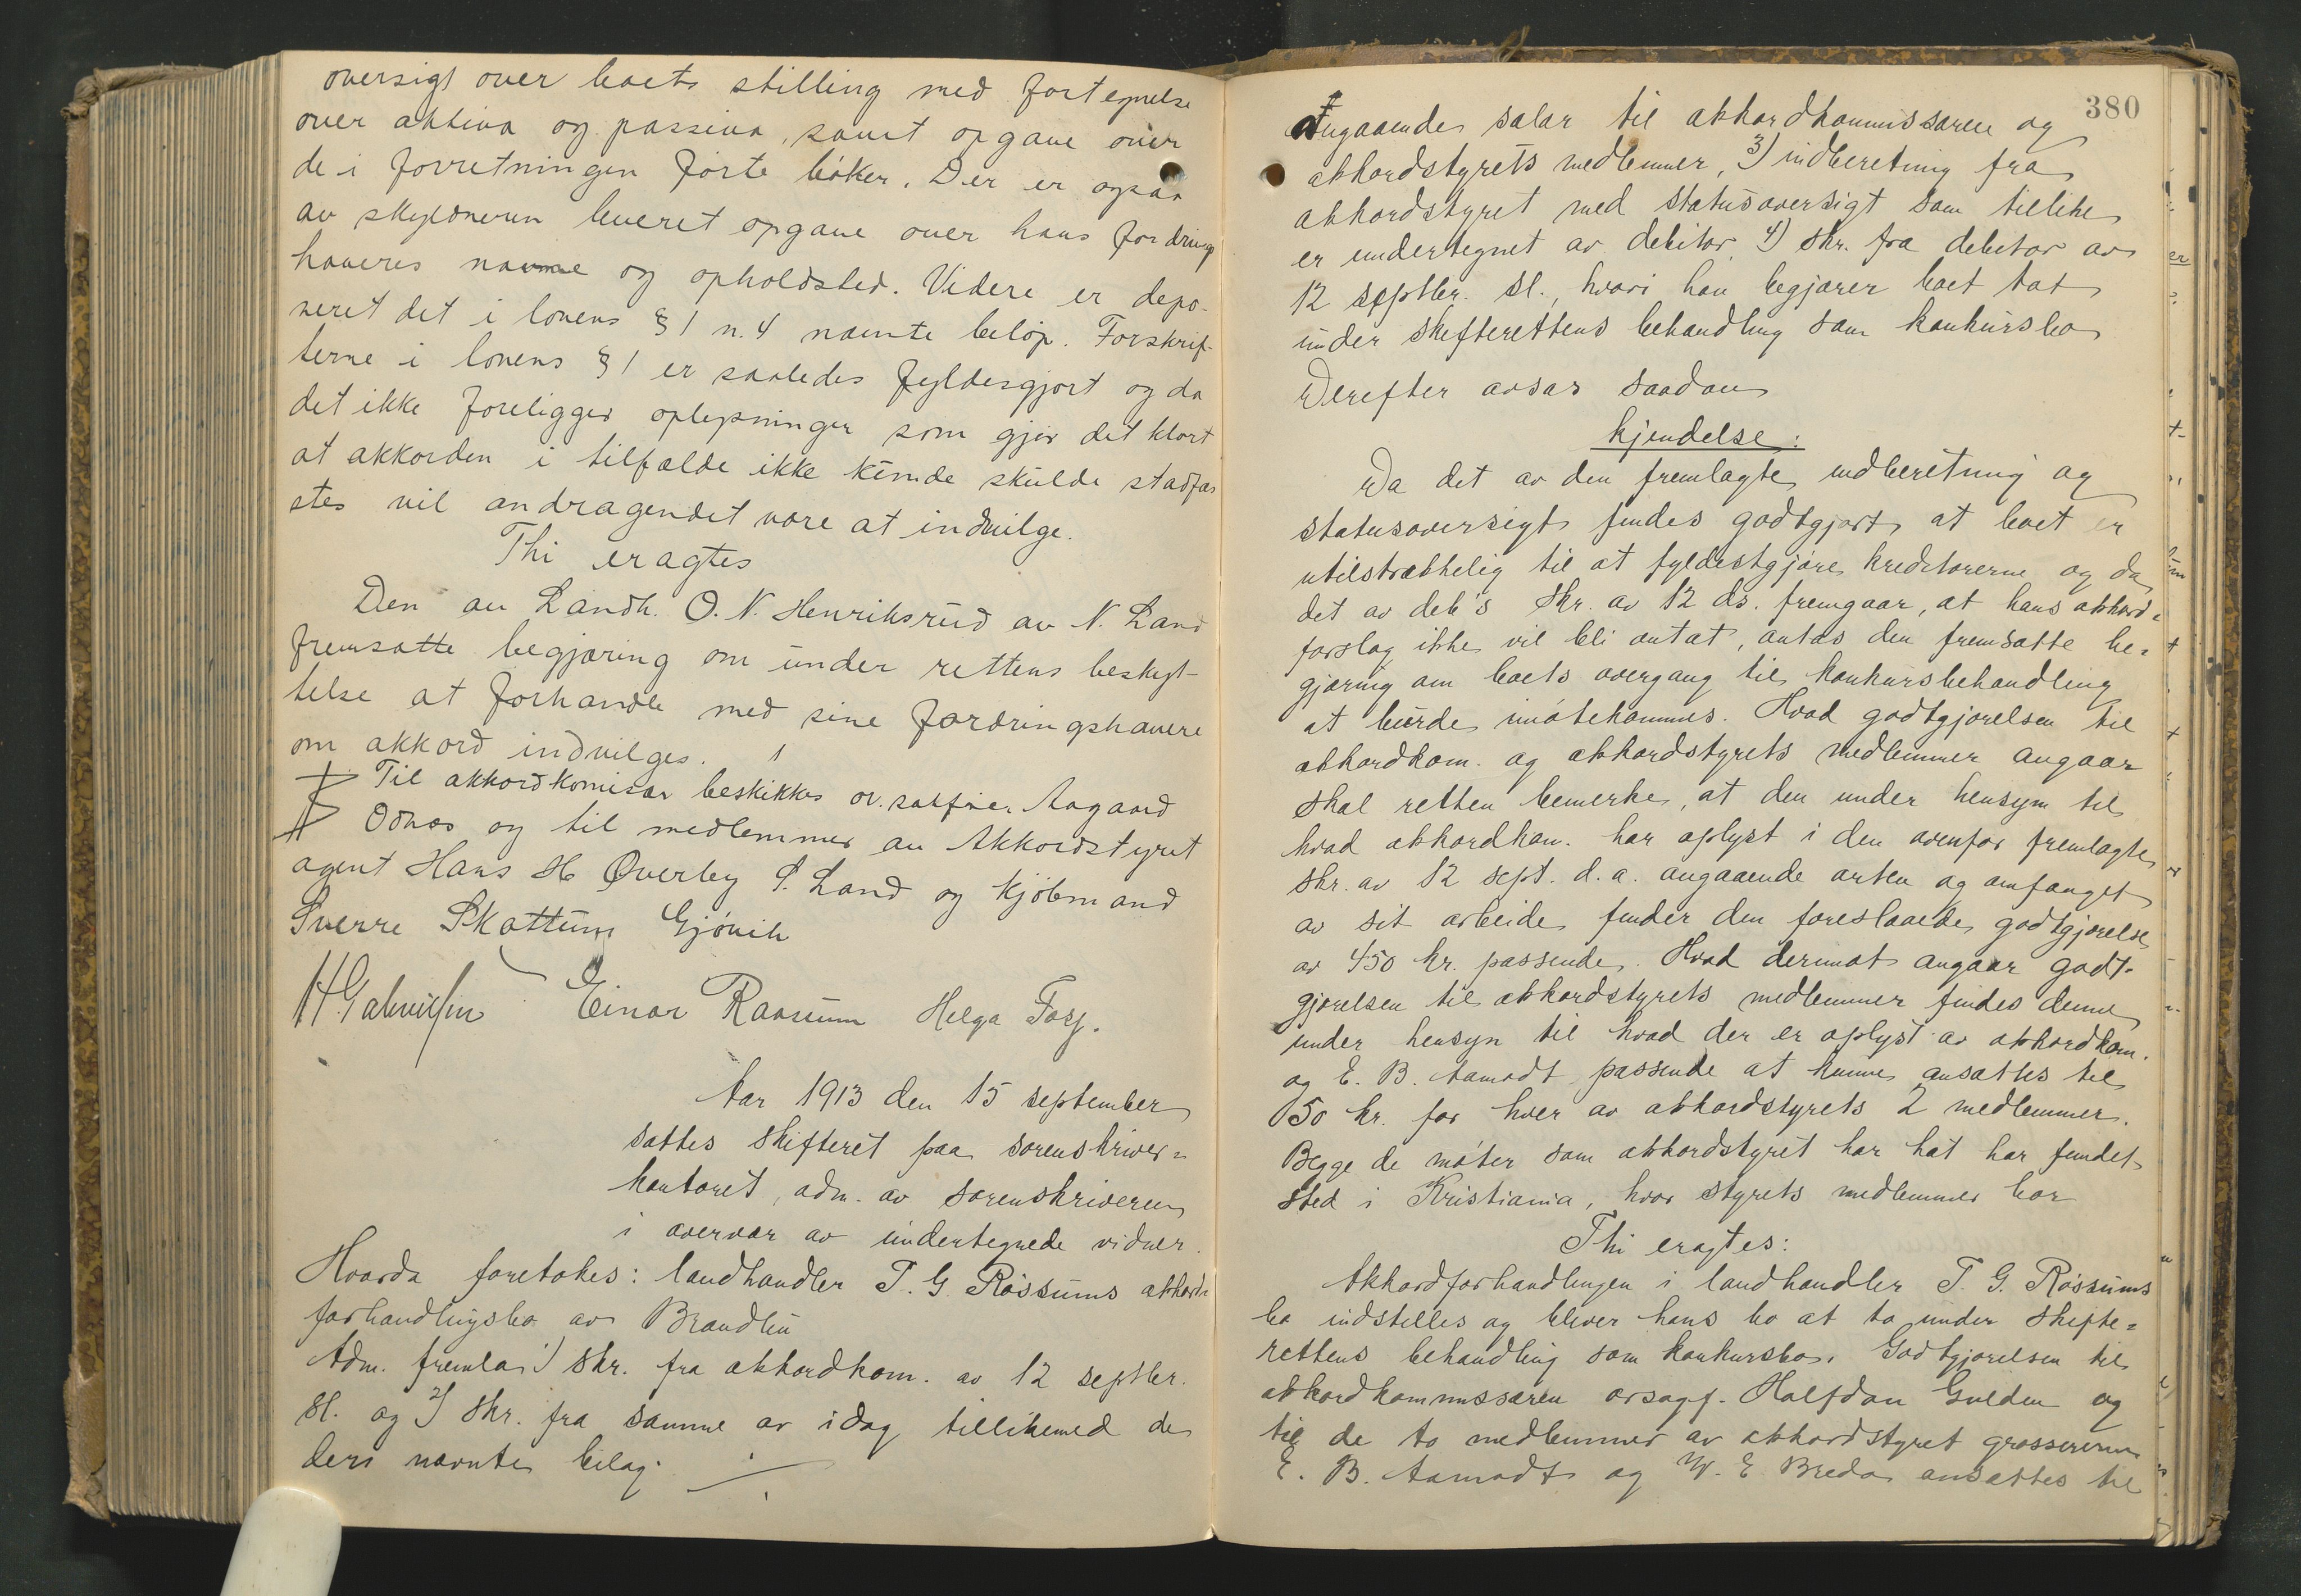 oversigt over boets stilling med fortegnelse
over aktiva og passiva, samt opgave over
de i forretningen førte bøker. Der er ogsaa
av skyldneren leveret opgave over hans fordrings
haveres navne og opholdsted. Videre er depo-
neret det i lovens § 1 n. 4 nævnte beløp. Forskrif-
terne i lovens § 1 er saaledes fyldesgjort og da
det ikke foreligger oplysninger som gjør det klart
at akkorden i tilfælde ikke kunde skulde stadfæ
stes vil andragendet være at indvilge.
Thi eragtes
Den av Landh. O. N. Henriksrud av N. Land
fremsatte begjæring om under rettens beskyt-
telse at forhandle med sine fordringshavere
om akkord indvilges.
Til akkordkomisær beskikkes ov. sakfører Aagaard
Odnæs og til medlemmer av Akkordstyret
agent Hans H Øverby S. Land og kjøbmand
Sverre Skattum Gjøvik
Einar Raasum Helga Fosj.
Aar 1913 den 15 september
sattes skifteret paa sorenskriver=
kontoret, adm. av sorenskriveren
i overvær av undertegnede vidner.
Hvorda foretokes: landhandler T. G. Røssums akkord=
forhandlingsbo av Brandbu
Adm. fremla 1) skr. fra akkordkom. av 12 septbr.
sl. og 2) skr. fra samme av idag tillikemed de
deri nævnte bilag.
380
angaaende salær til akkordkommissæren og
akkordstyrets medlemmer, 3) indberetning fra
akkordstyret med statusoversigt som tillike
er undertegnet av debitor, 4) skr. fra debitor av
12 septbr. sl., hvori han begjærer boet tat
under skifterettens behandling som konkursbo
Derefter avsas saadan
kjendelse:
Da det av den fremlagte indberetning og
statusoversigt findes godtgjort, at boet er
utilstrækkelig til at fyldestgjøre kreditorerne og da
det av deb's skr. av 12 ds. fremgaar, at hans akkord=
forslag ikke vil bli antat, antas den fremsatte be=
gjæring om boets overgang til konkursbehandling
at burde imøtekommes. Hvad godtgjørelsen til
akkordkom. og akkordstyrets medlemmer angaar
skal retten bemerke, at den under hensyn til
hvad akkordkom. har oplyst i den ovenfor fremlagte
skr. av 12 sept. d. a. angaaende arten og omfanget
av sit arbeide finder den foreslaaede godtgjørelse
av 450 kr. passende. Hvad derimot angaar godt-
gjørelsen til akkordstyrets medlemmer findes denne
under hensyn til hvad der er oplyst av akkordkom.
og E. B. Aamodt passende at kunne ansættes til
50 kr. for hver av akkordstyrets 2 medlemmer.
Begge de møter som akkordstyret har hat har fundet
sted i Kristiania, hvor styrets medlemmer bor
Thi eragtes:
Akkordforhandlingen i landhandler T. G. Røssums
bo indstilles og bliver hans bo at ta under skifte=
rettens behandling som konkursbo. Godtgjørelsen til
akkordkommissæren orsagf. Halfdan Gulden og
til de to medlemmer av akkordstyret grossererne
E. B. Aamodt og W. E Breda ansættes til